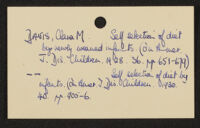 DAVIS, Clara M. Self selection of diet
by newly weaned infants. (in Amer.
J. Dis. Children. 1928. 36. pp 651-679)
Self selection of diet by
infants. (in Amer. J. Dis. Children. 1930.
40. pp 905-6.